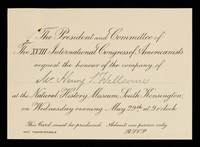 The President and Committee of
The XVIII International Congress of Americanists
request the honour of the company of
Mr. Henry S. Wellcome
at the Natural History Museum, South Kensington,
on Wednesday evening May 29th at 9 o'clock.
This Card must be produced. Admits one person only.
NOT TRANSFERABLE
R.S.V.P